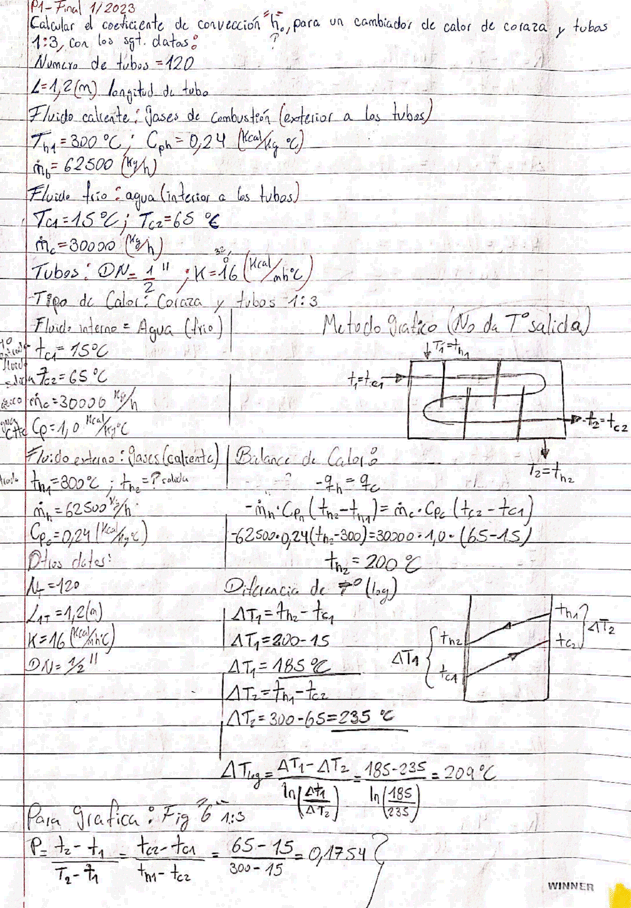 P1-Final 1/2023
Calcular el coeficiente de convección "ho", para un cambiador de calor de coraza y tubos
1:3, con los sgt. datos: ?
Numero de tubos = 120
L=1,2(m) longitud de tubo
Fluido caliente: gases de combustión (exterior a los tubos)
Th1=300°C; Cph=0,24 (Kcal/Kg°C)
ṁh=62500 (Kg/h)
Fluido frio: agua (interior a los tubos)
Tc1=15°C; Tc2=65°C
ṁc=30000 (Kg/h)
Tubos: DN=1/2"; K=16 (Kcal/mh°C)
Tipo de Calor: Coraza y tubos 1:3
Fluido interno = Agua (frio)
tc1=15°C
tc2=65°C
ṁc=30000 Kg/h
Cp=1,0 Kcal/Kg°C
Fluido externo: gases (caliente)
th1=300°C; th2=? salida
ṁh=62500 Kg/h
Cpc=0,24 (Kcal/Kg°C)
Otros datos:
Nt=120
L1T=1,2(m)
K=16 (Kcal/mh°C)
DN=1/2"
Metodo grafico (No da T° salida)
T1=th1
t1=tc1
t2=tc2
T2=th2
Balance de Calor:
-qh=qc
-ṁh·Cph(th2-th1)=ṁc·Cpc(tc2-tc1)
-62500·0,24(th2-300)=30000·1,0·(65-15)
th2=200°C
Diferencia de T°(log)
ΔT1=th2-tc1
ΔT1=200-15
ΔT1=185°C
ΔT2=th1-tc2
ΔT2=300-65=235°C
th1
ΔT2
th2
tc2
ΔT1
tc1
ΔTlog=ΔT1-ΔT2/ln(ΔT1/ΔT2)=185-235/ln(185/235)=209°C
Para Grafica: Fig "6" 1:3
P=t2-t1/T2-t1=tc2-tc1/th1-tc2=65-15/300-15=0,1754?
WINNER